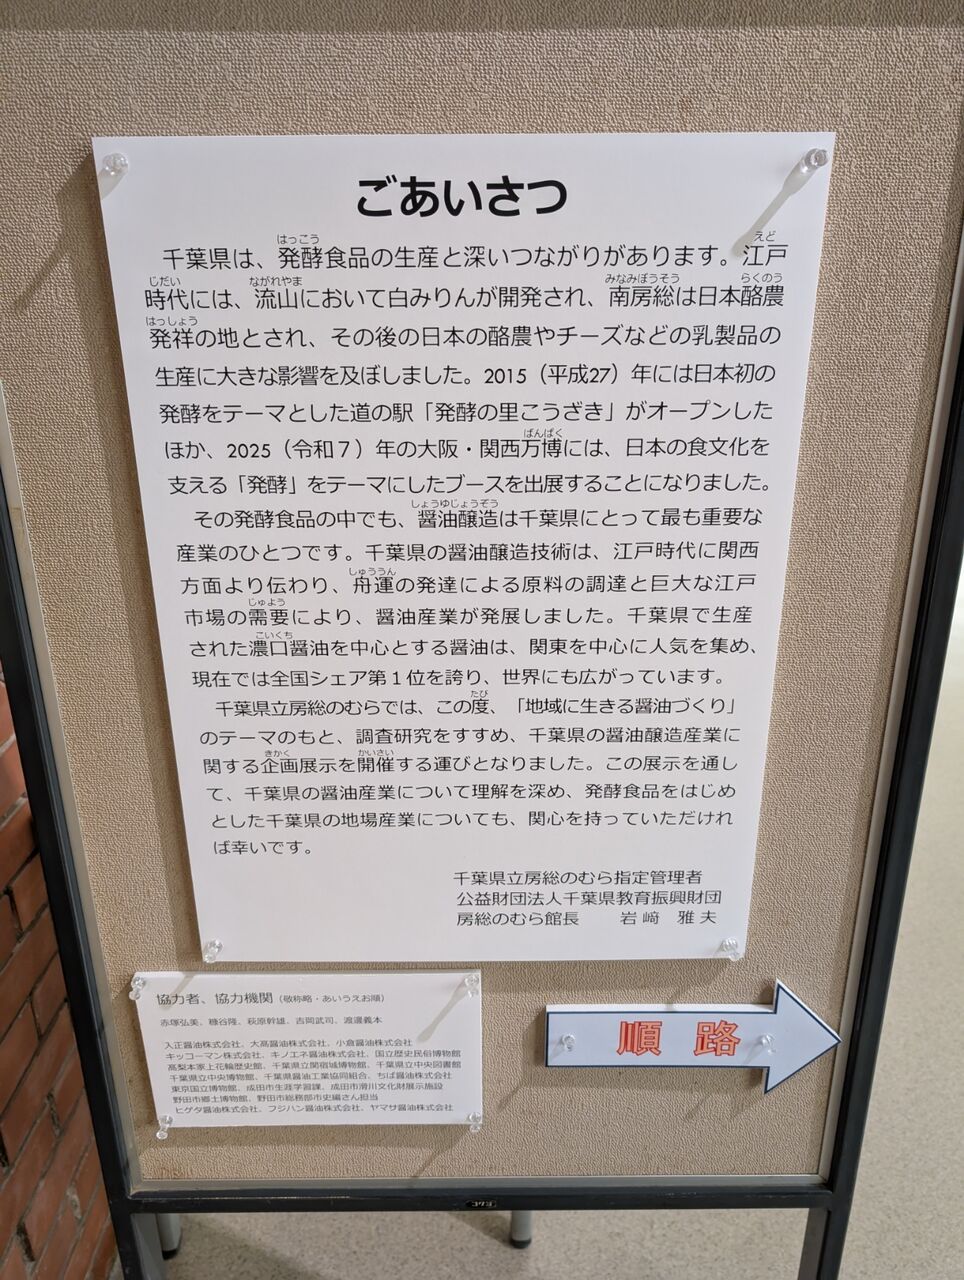 ごあいさつ
千葉県は、発酵食品の生産と深いつながりがあります。江戸
時代には、流山において白みりんが開発され、南房総は日本酪農
発祥の地とされ、その後の日本の酪農やチーズなどの乳製品の
生産に大きな影響を及ぼしました。2015（平成27）年には日本初の
発酵をテーマとした道の駅「発酵の里こうざき」がオープンした
ほか、2025（令和７）年の大阪・関西万博には、日本の食文化を
支える「発酵」をテーマにしたブースを出展することになりました。
その発酵食品の中でも、醤油醸造は千葉県にとって最も重要な
産業のひとつです。千葉県の醤油醸造技術は、江戸時代に関西
方面より伝わり、舟運の発達による原料の調達と巨大な江戸
市場の需要により、醤油産業が発展しました。千葉県で生産
された濃口醤油を中心とする醤油は、関東を中心に人気を集め、
現在では全国シェア第１位を誇り、世界にも広がっています。
千葉県立房総のむらでは、この度、「地域に生きる醤油づくり」
のテーマのもと、調査研究をすすめ、千葉県の醤油醸造産業に
関する企画展示を開催する運びとなりました。この展示を通し
て、千葉県の醤油産業について理解を深め、発酵食品をはじめ
とした千葉県の地場産業についても、関心を持っていただけれ
ば幸いです。
千葉県立房総のむら指定管理者
公益財団法人千葉県教育振興財団
房総のむら館長　岩﨑　雅夫
協力者、協力機関（敬称略・あいうえお順）
赤塚弘美、糠谷隆、萩原幹雄、吉岡武司、渡邊義本
入正醤油株式会社、大高醤油株式会社、小倉醤油株式会社
キッコーマン株式会社、キノエネ醤油株式会社、国立歴史民俗博物館
髙梨本家上花輪歴史館、千葉県立関宿城博物館、千葉県立中央図書館
千葉県立中央博物館、千葉県醤油工業協同組合、ちば醤油株式会社
東京国立博物館、成田市生涯学習課、成田市滑川文化財展示施設
野田市郷土博物館、野田市総務部市史編さん担当
ヒゲタ醤油株式会社、フジハン醤油株式会社、ヤマサ醤油株式会社
順路